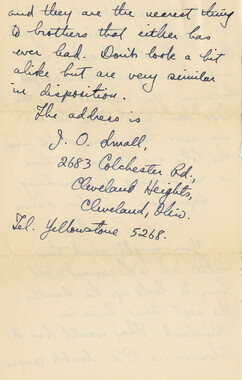 and they are the nearest thing
to brothers that either has
ever had. Don't look a bit
alike but are very similar
in disposition.
The address is
J. O. Small,
2683 Colchester Rd.,
Cleveland Heights,
Cleveland, Ohio.
Tel. Yellowstone 5268.